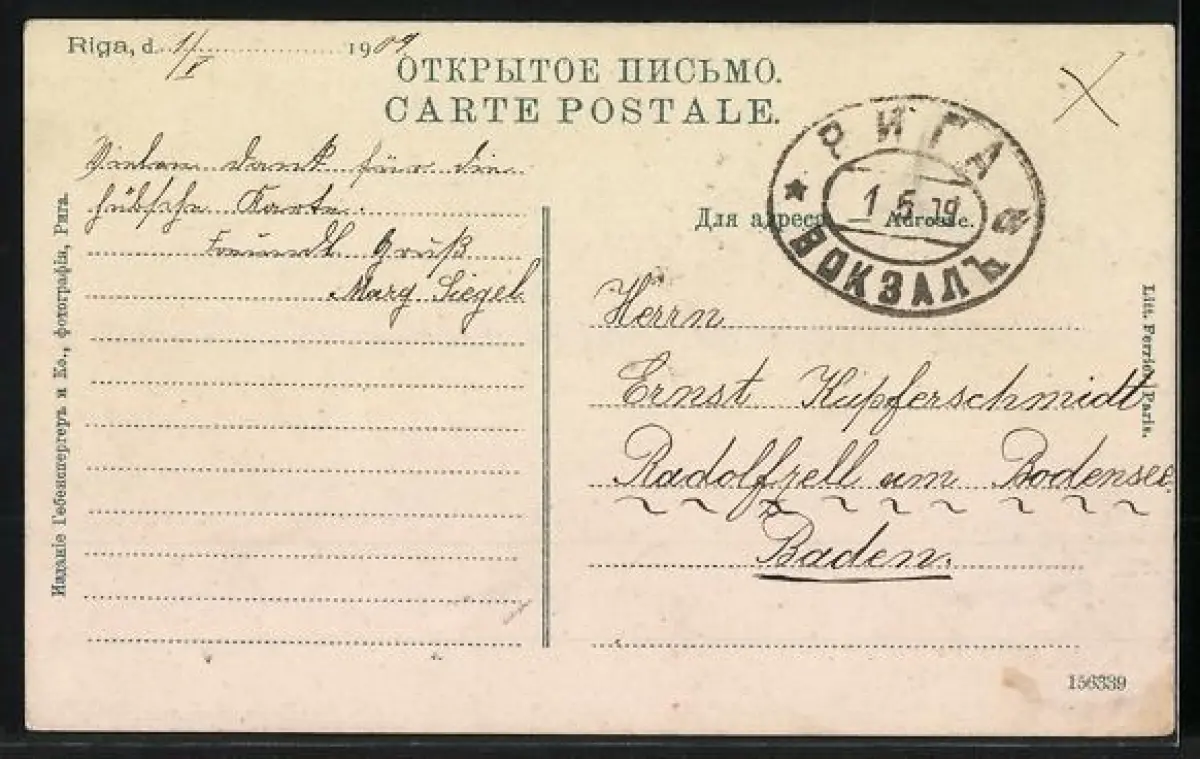 Riga, d. 1/V 1909
ОТКРЫТОЕ ПИСЬМО.
CARTE POSTALE.
Vielen Dank für die
hübsche Karte.
Freundl. Gruß
Marg Siegel
РИГА
1 5 09
ВОКЗАЛЪ
а
Для адреса Adresse.
Herrn
Ernst Küpferschmidt
Radolfzell am Bodensee
Baden.
Изданіе Гебенспергеръ и Ко., фотографія, Рига.
Litt. Ferrier, Paris.
156339